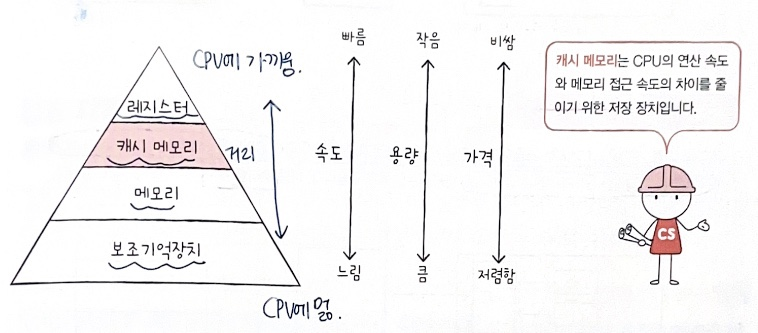 CPU에 가까움.
레지스터
캐시 메모리
거리
메모리
보조기억장치
CPU에 멂.
빠름
속도
느림
작음
용량
큼
비쌈
가격
저렴함
캐시 메모리는 CPU의 연산 속도
와 메모리 접근 속도의 차이를 줄
이기 위한 저장 장치입니다.
CS